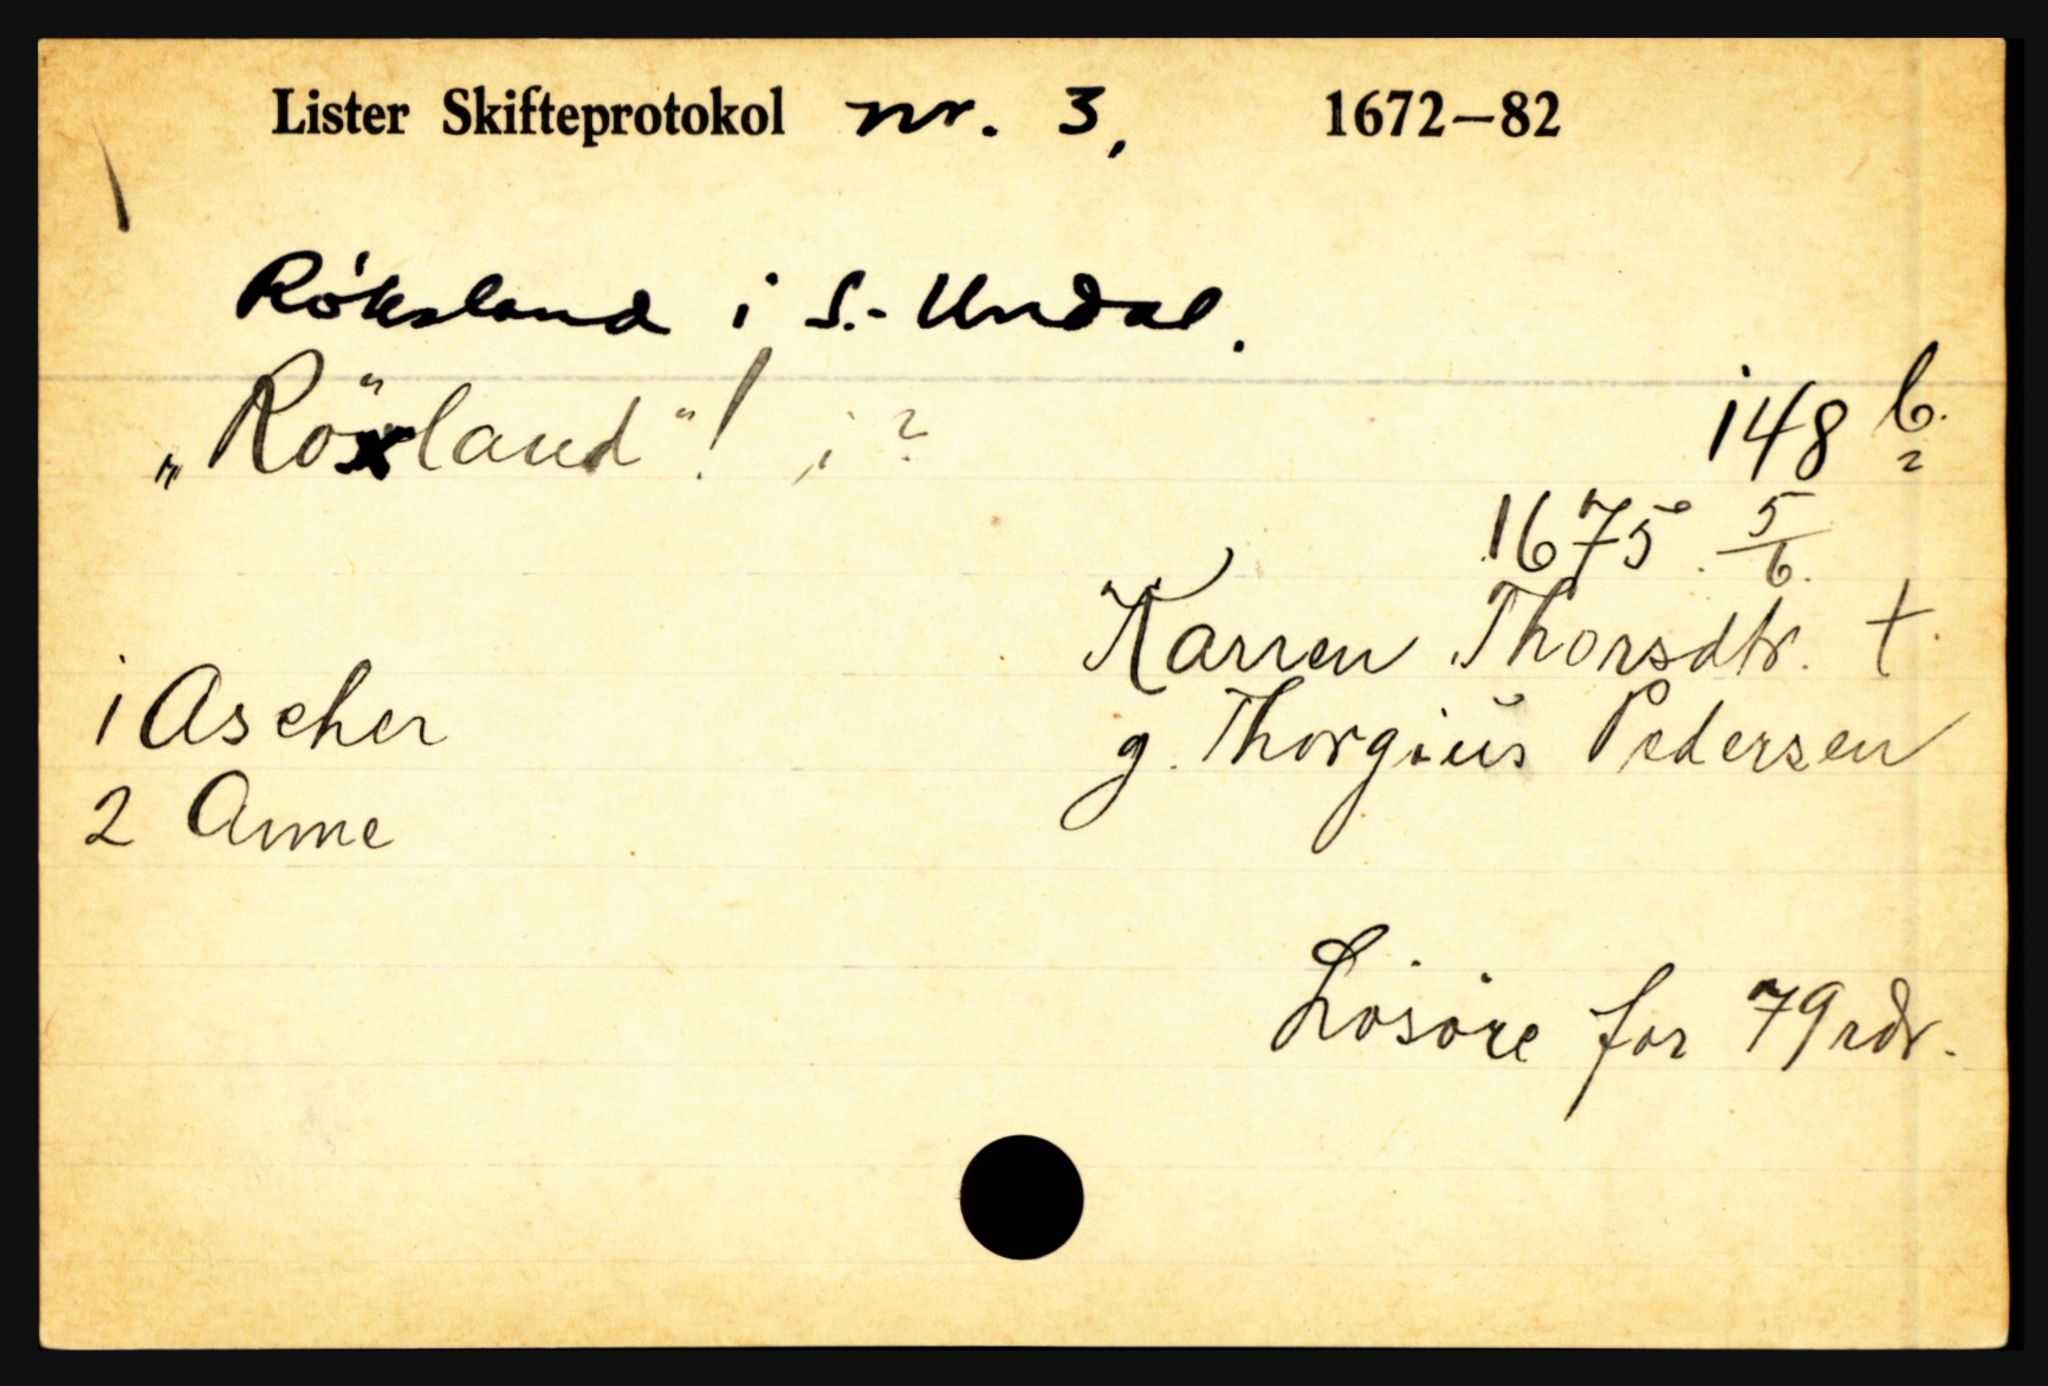 Lister Skifteprotokol nr. 3, 1672–82
Röksland i S.-Undal.
„Röxland"! i ?
148 b.
2
1675. 5/6.
Karren Thorsdtr. †.
1 Ascher
g. Thorgius Pedersen
2 Anne
Lösöre for 79 rdr.